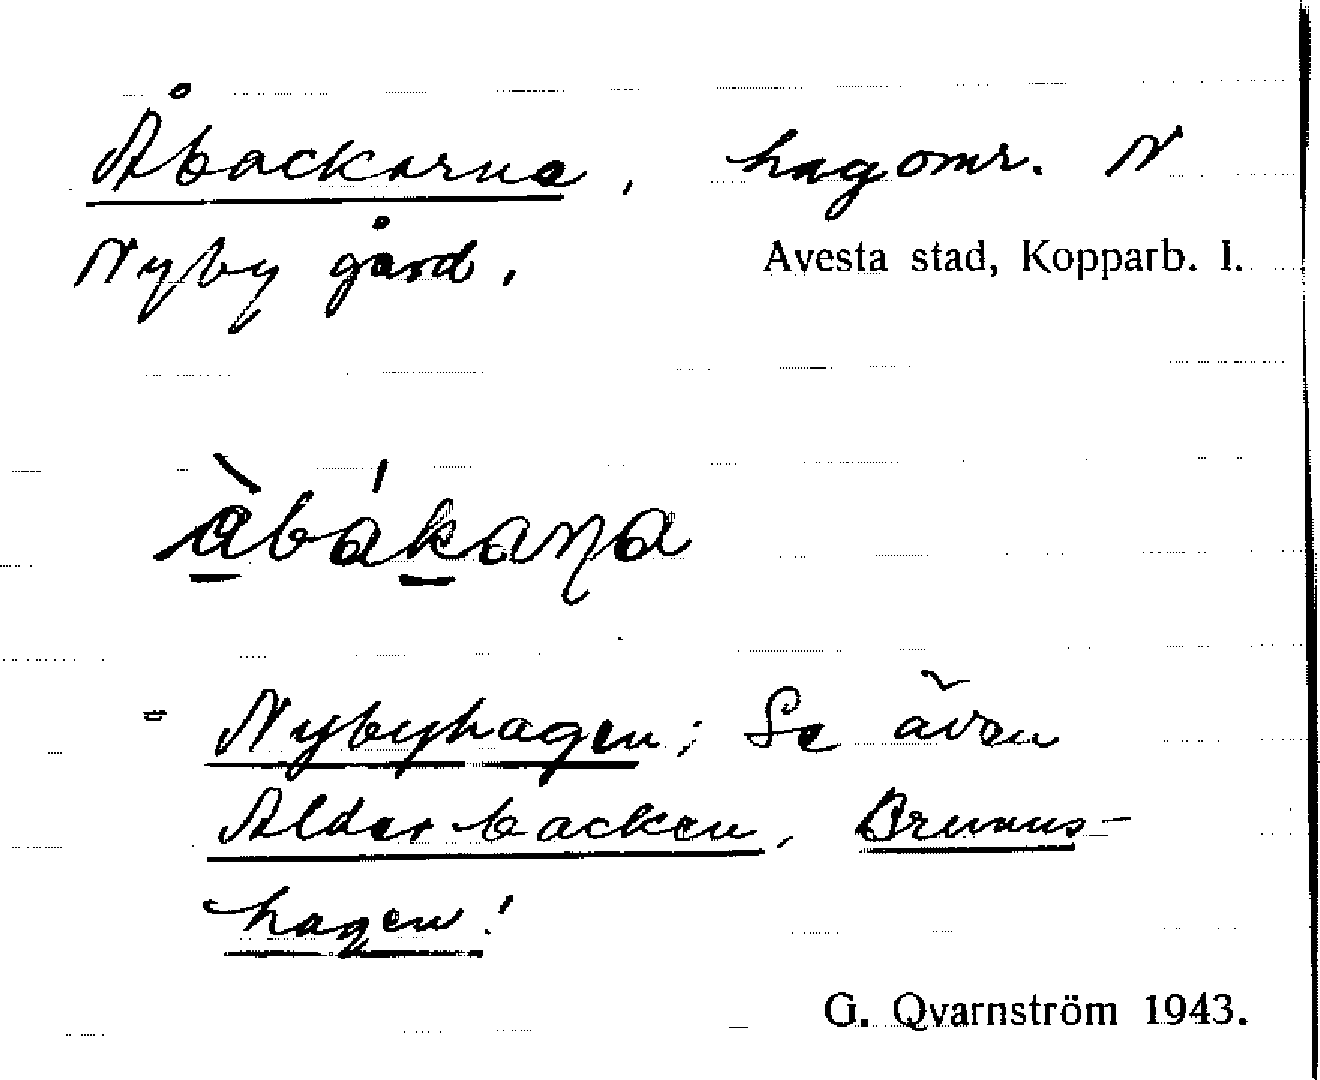 Åbackarna, hagomr. N
Nyby gård. Avesta stad, Kopparb. l.
àbákaṇa
= Nybyhagen; Se även
Alderbacken, Brunns-
hagen!
G. Qvarnström 1943.